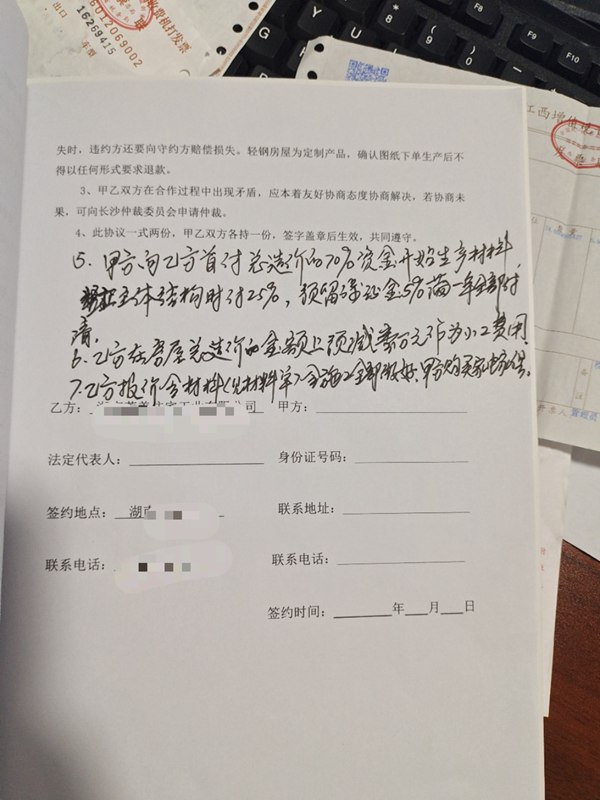 16012069002
16269415
出口
车型
江西增值税
失时，违约方还要向守约方赔偿损失。轻钢房屋为定制产品，确认图纸下单生产后不
得以任何形式要求退款。
3、甲乙双方在合作过程中出现矛盾，应本着友好协商态度协商解决，若协商未
果，可向长沙仲裁委员会申请仲裁。
4、此协议一式两份，甲乙双方各持一份，签字盖章后生效，共同遵守。
5、甲方向乙方首付总造价的70%资金开始生产材料，
主体结构时付25%，预留保证金5%满一年全部付
清。
6、乙方在房屋总造价的金额上须减壹万元作为小工费用
7、乙方报价含材料(见材料单)全施工全部做好。甲方购买家
乙方：
甲方：
法定代表人：
身份证号码：
签约地点：湖南
联系地址：
联系电话：
联系电话：
签约时间：年月日